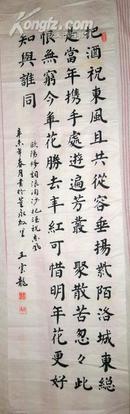 把酒祝東風且共從容垂楊紫陌洛城東總
是當年携手處遊遍芳叢 聚散苦忽々此
恨無窮今年花勝去年紅可惜明年花更好
知與誰同
歐陽修詞浪淘沙把酒祝東風
辛未年春月書於
王雲龍